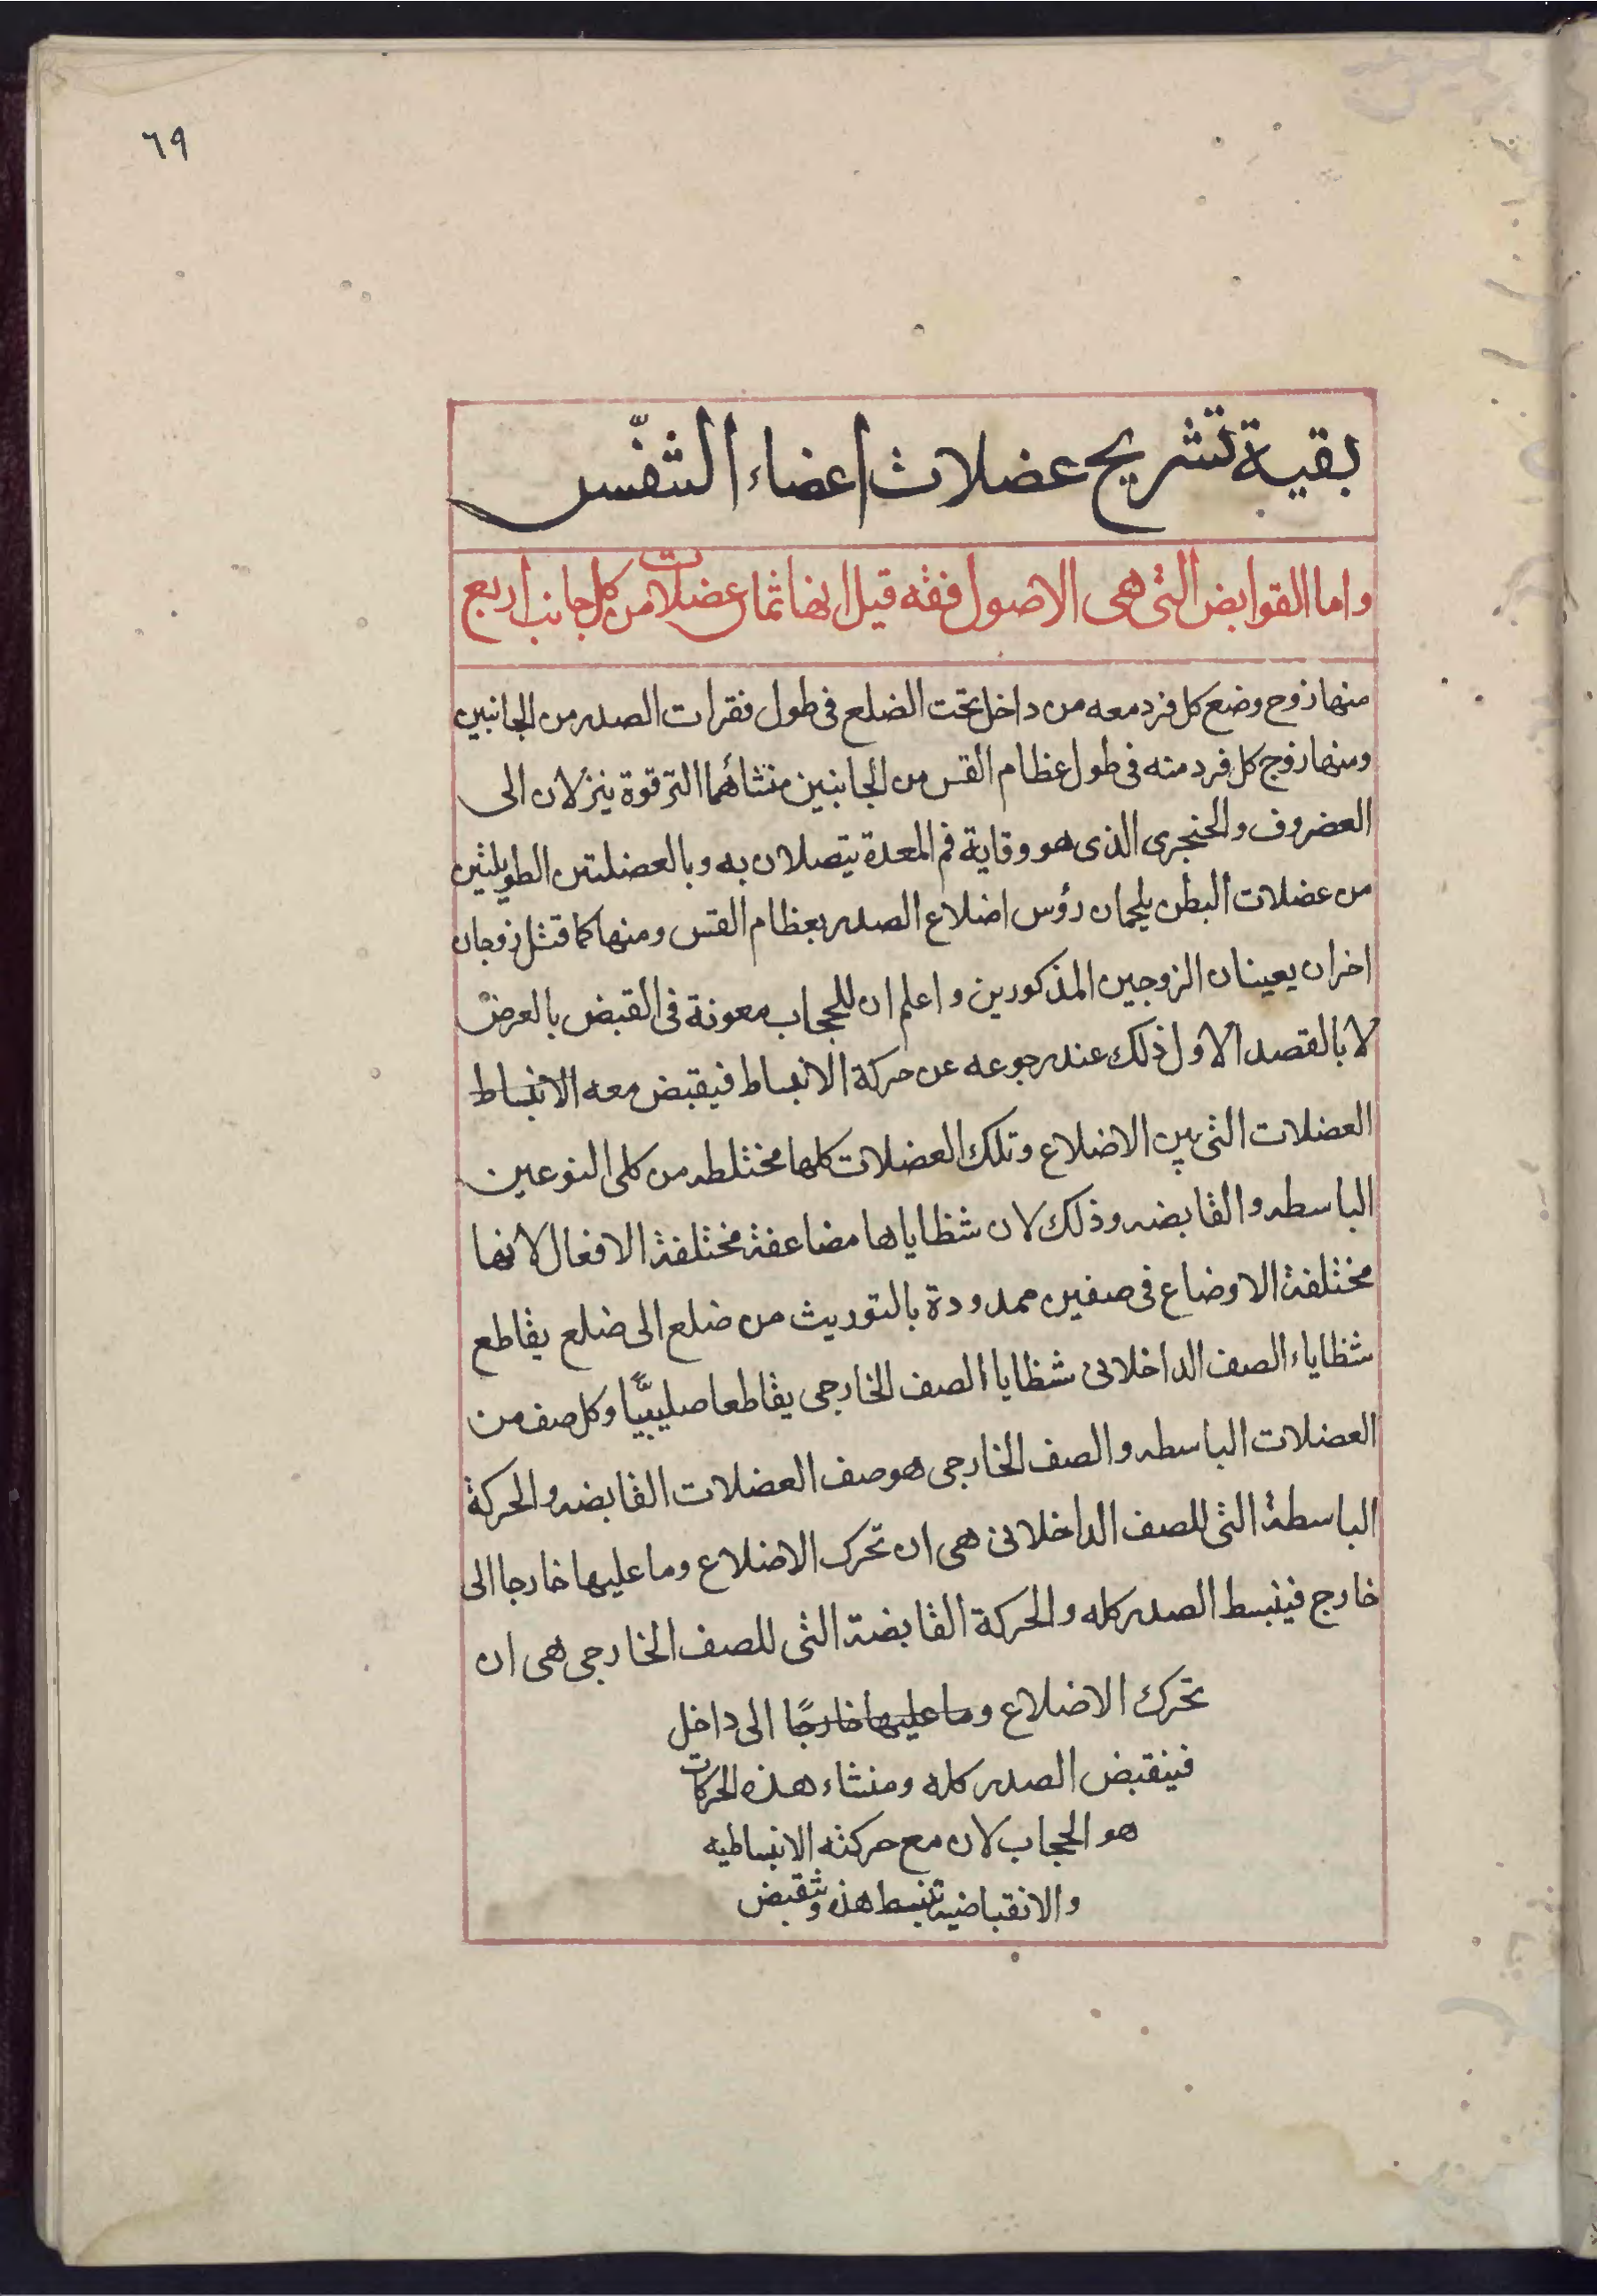 ٦٩
بقية تشريح عضلات اعضاء التنفّس
واما القوابض التى هى الاصول فقه قيل انها ثمان عضلات من كل جانب اربع
منها زوج وضع كل فرد معه من داخل تحت الضلع فى طول فقرات الصدر من الجانبين
ومنها زوج كل فرد منه فى طول عظام القس من الجانبين منشأهما الترقوة ينزلان الى
العضروف والحنجرى الذى هو وقاية فم المعدة يتصلان به وبالعضلتين الطويلتين
من عضلات البطن يلجمان رؤس اضلاع الصدر بعظام القس ومنها كما قتل زوجان
اخران يعينان الزوجين المذكورين واعلم ان للحجاب معونة فى القبض بالعرض
لا بالقصد الاول ذلك عند رجوعه عن حركة الانبساط فيقبض معه الانبساط
العضلات التى بين الاضلاع وتلك العضلات كلها مختلطه من كلى النوعين
الباسطه والقابضه وذلك لان شظاياها مضاعفة مختلفة الافعال لانها
مختلفة الاوضاع فى صفين ممدودة بالتوريث من ضلع الى ضلع يقاطع
شظاياء الصف الداخلانى شظايا الصف الخارجى يقاطعا صليبيًّا وكل صف من
العضلات الباسطه والصف الخارجى هو صف العضلات القابضه والحركة
الباسطة التى للصف الداخلانى هى ان تحرك الاضلاع وما عليها خارجا الى
خارج فينبسط الصدر كله والحركة القابضة التى للصف الخارجى هى ان
تحرك الاضلاع وما عليها خارجًا الى داخل
فينقبض الصدر كله ومنشاء هذه الحركات
هو الحجاب لان مع حركته الانبساطيه
والانقباضية تنبسط هذه وتقبض